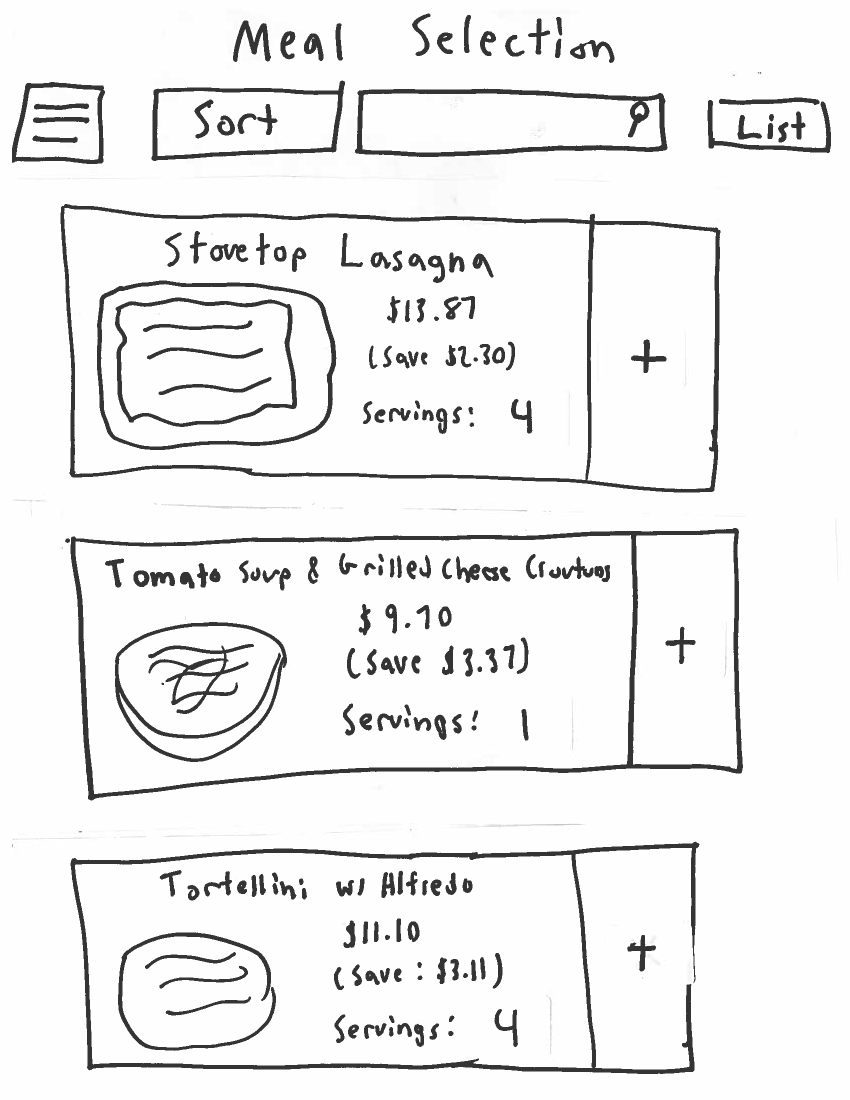 Meal Selection
Sort
List
Stovetop Lasagna
$13.87
(Save $2.30)
+
Servings: 4
Tomato Soup & Grilled Cheese Croutons
$9.70
(Save $3.37)
+
Servings: 1
Tortellini w/ Alfredo
$11.10
+
(Save: $3.11)
Servings: 4